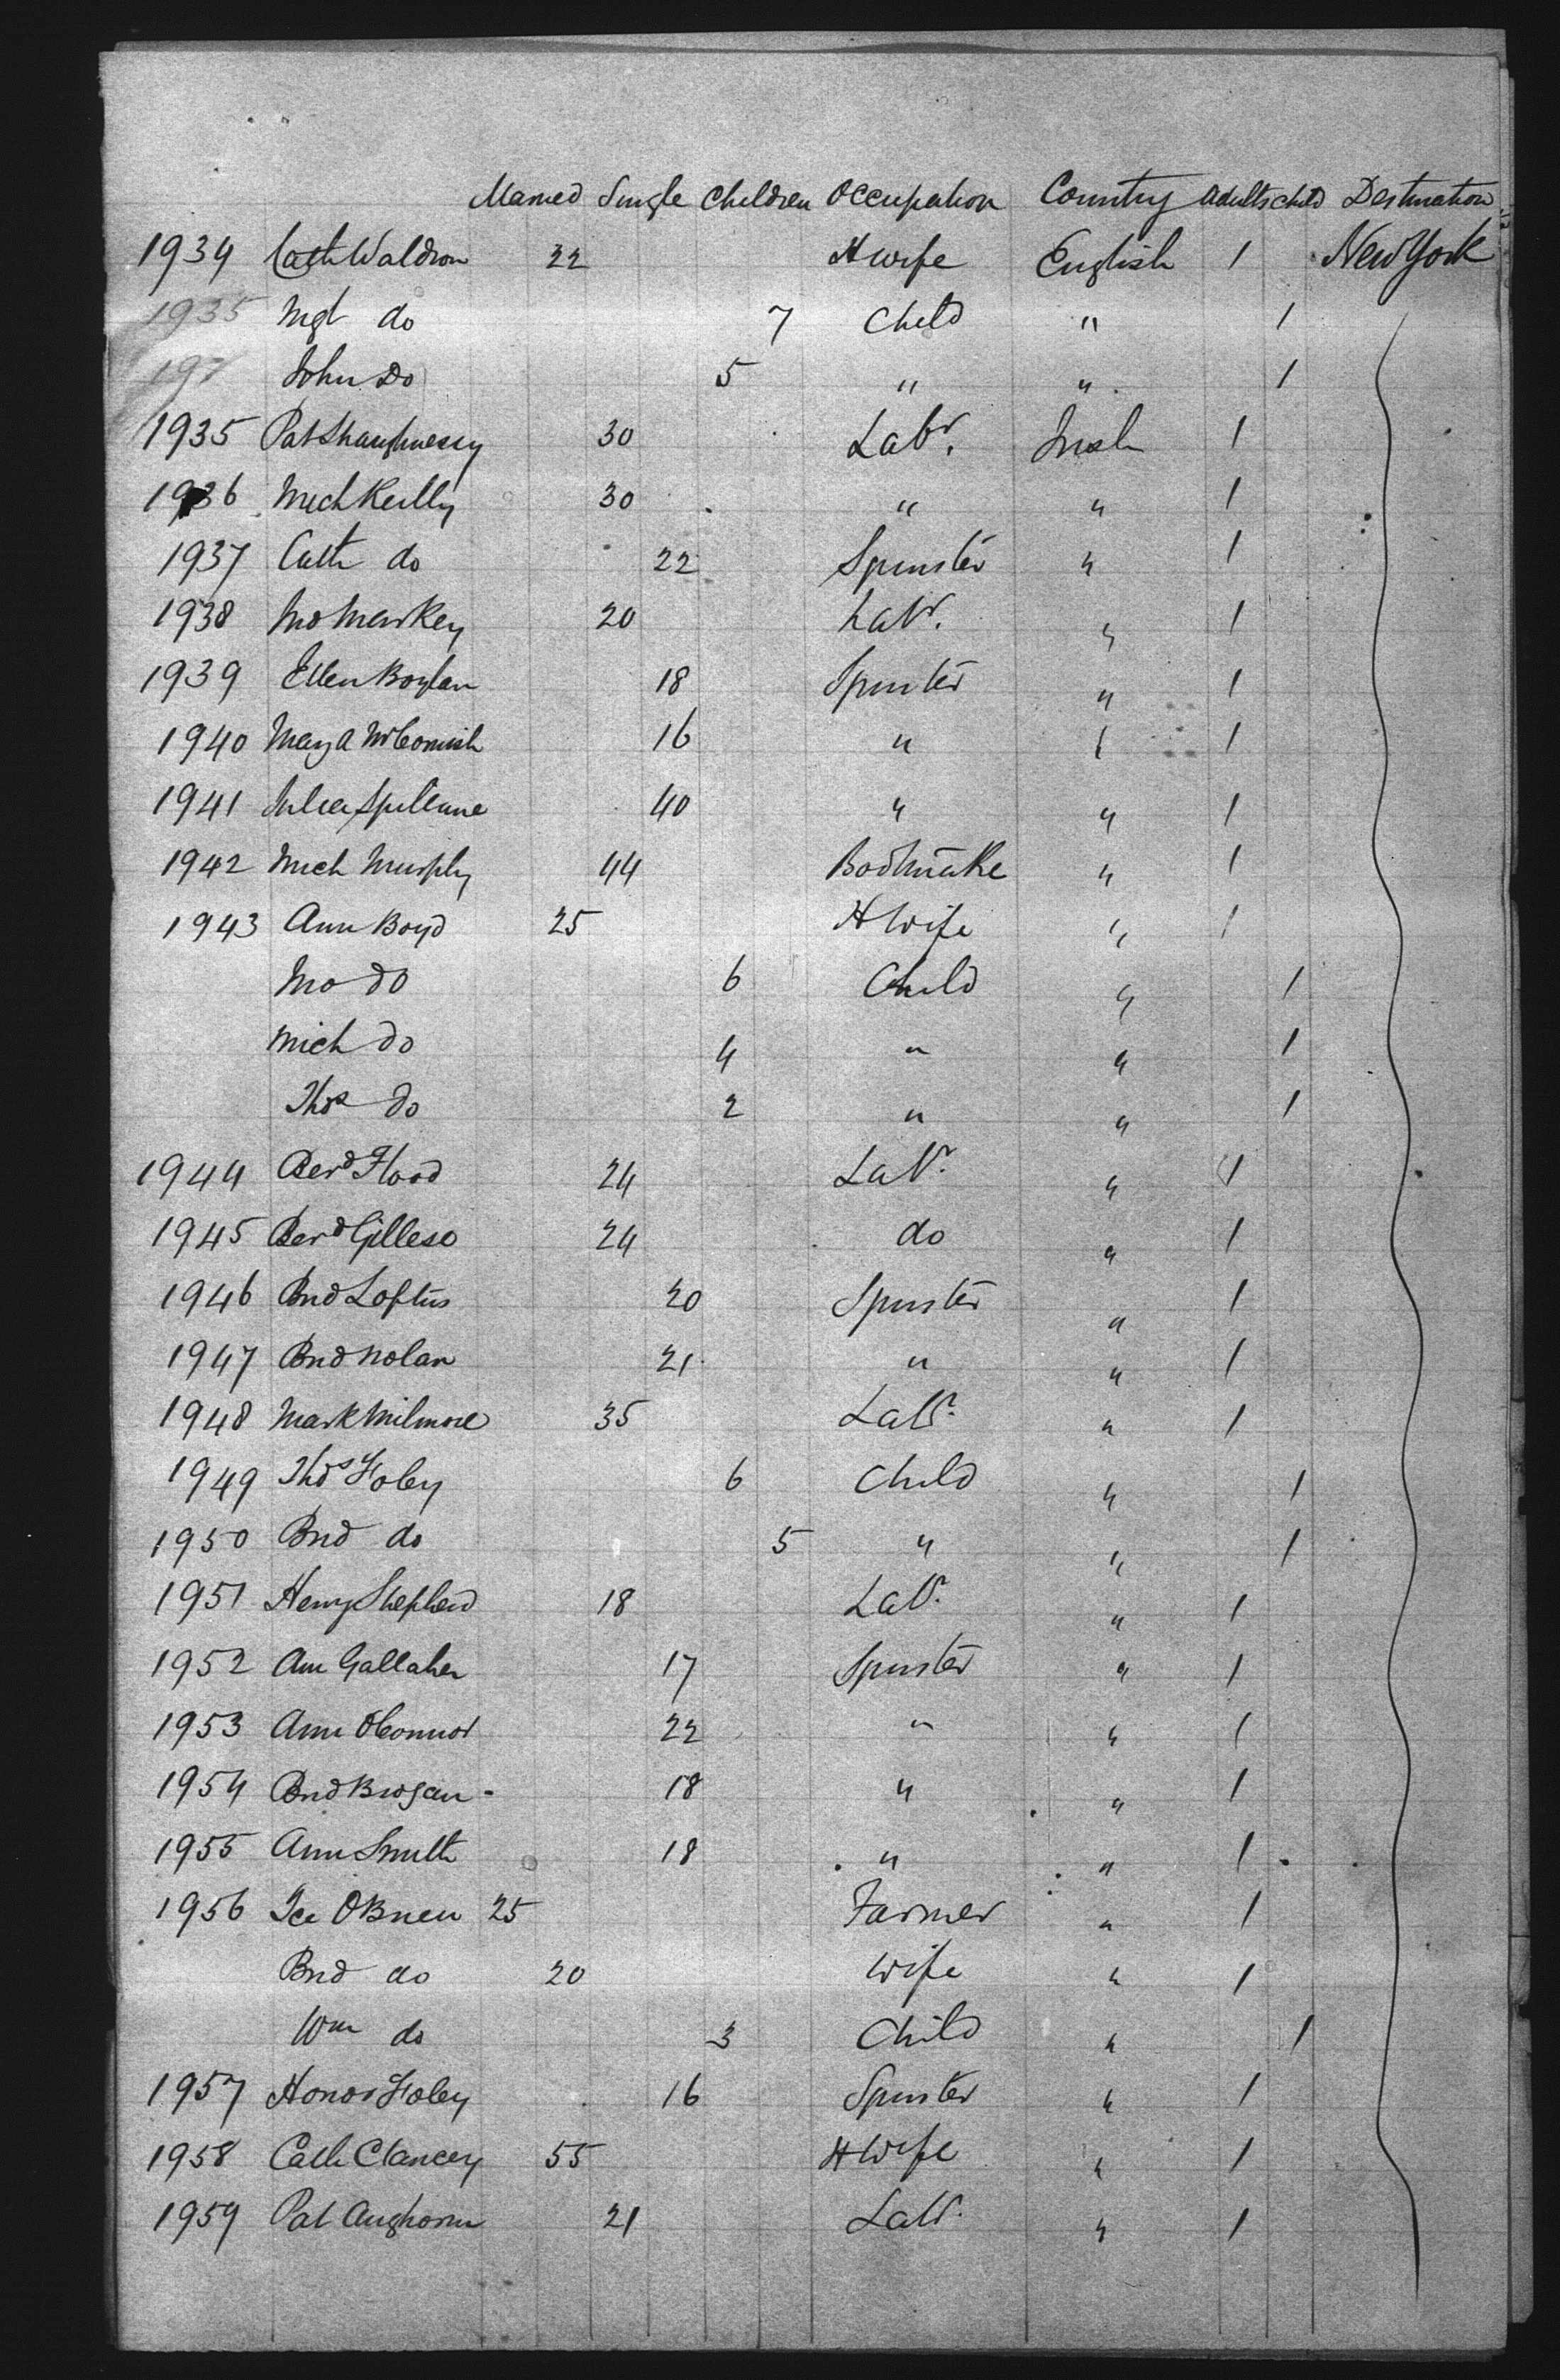 Married Single Children Occupation Country Adults Child Destination
1934 Cath Waldron 22 H wife English 1 New York
1935 Mgt do 7 Child " 1
193 John Do 5 " " 1
1935 Pat Shaughnessy 30 Labr. Irish 1
1936 Mich Reilly 30 " " 1
1937 Cath do 22 Spinster " 1
1938 Markey 20 Labr. " 1
1939 Ellen Boylan 18 Spinster " 1
1940 Mary A McComish 16 " " 1
1941 Julia Spillane 40 " " 1
1942 Mich Murphy 44 " 1
1943 Ann Boyd 25 H Wife " 1
do 6 Child " 1
Mich do 4 " " 1
Thos do 2 " " 1
1944 Berd Flood 24 Labr. " 1
1945 Berd Gillese 24 do " 1
1946 Brid Loftus 20 Spinster " 1
1947 Brid Nolan 21 " " 1
1948 Mark Milmore 35 Labr. " 1
1949 Thos Foley 6 Child " 1
1950 Brid do 5 " " 1
1951 Henry Shepherd 18 Labr. " 1
1952 Ann Gallaher 17 Spinster " 1
1953 Ann OConnor 22 " " 1
1954 Brid Brogan - 18 " " 1
1955 Ann Smith 18 " " 1
1956 OBrien 25 Farmer " 1
Brid do 20 Wife " 1
Wm do 3 Child " 1
1957 Honor Foley 16 Spinster " 1
1958 Cath Clancey 55 H Wife " 1
1959 Pat 21 Labr. " 1